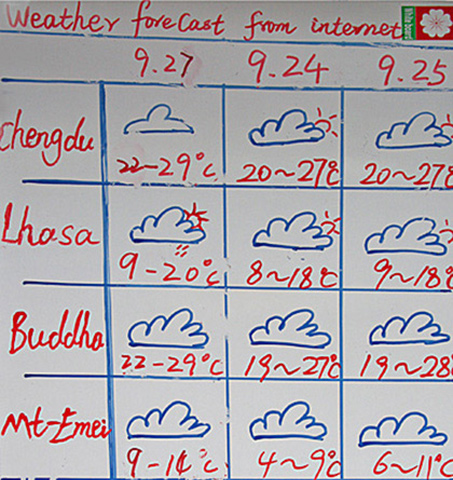 Weather forecast from internet
White board
9.27 9.24 9.25
Chengdu 22-29°C 20~27°C 20~27°C
Lhasa 9-20°C 8~18°C 9~18°C
Buddha 22-29°C 19~27°C 19~28°C
Mt-Emei 4~9°C 6~11°C